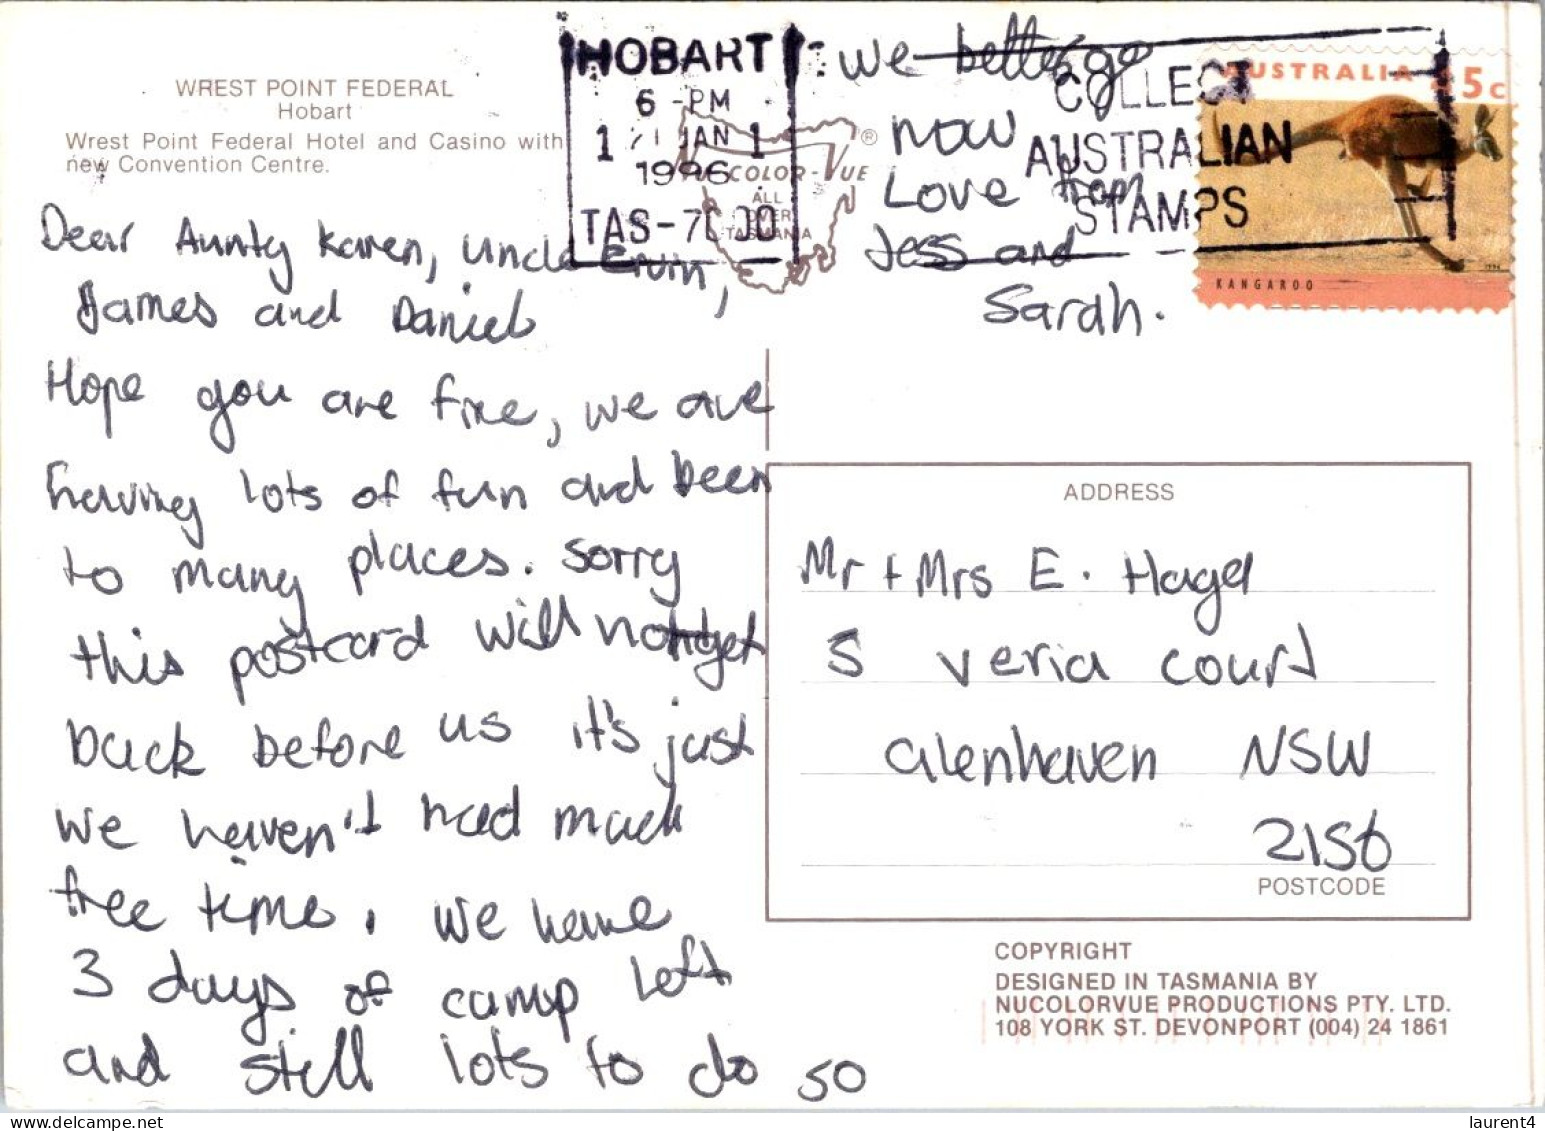 WREST POINT FEDERAL
Hobart
Wrest Point Federal Hotel and Casino with
new Convention Centre.
Dear Aunty Karen, Uncle Ervin,
James and Daniel
Hope you are fine, we are
having lots of fun and been
to many places. Sorry
this postcard will not get
back before us it's just
we haven't had much
free time. We have
3 days of camp left
and still lots to do so
we better go
now
Love from
Jess and
Sarah.
HOBART
6 -PM
JAN
1996
TAS-7000
NU-COLOR-VUE ®
ALL
OVER
TASMANIA
COLLECT
AUSTRALIAN
STAMPS
AUSTRALIA 45c
KANGAROO
ADDRESS
Mr + Mrs E. Hagel
5 Veria Court
Glenhaven NSW
2156
POSTCODE
COPYRIGHT
DESIGNED IN TASMANIA BY
NUCOLORVUE PRODUCTIONS PTY. LTD.
108 YORK ST. DEVONPORT (004) 24 1861
laurent4